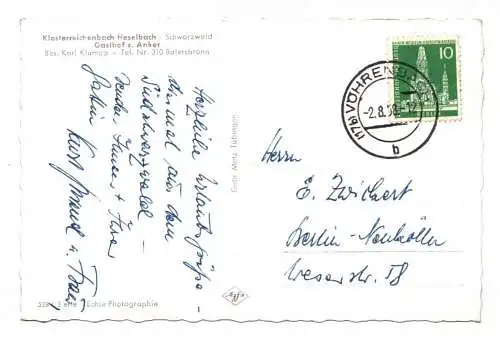 Klosterreichenbach Heselbach - Schwarzwald
Gasthof z. Anker
Bes. Karl Klumpp - Tel. Nr. 310 Baiersbronn
Herzliche Urlaubsgrüße
diesmal aus dem
Südschwarzwald
senden Ihnen +
Gebr. Metz Tübingen
Echte Photographie
Agfa
10
(17b) VÖHRENBACH
-2.8.58-12
b
Herrn
E. Zwickert
Berlin-Neukölln
Weserstr. 58